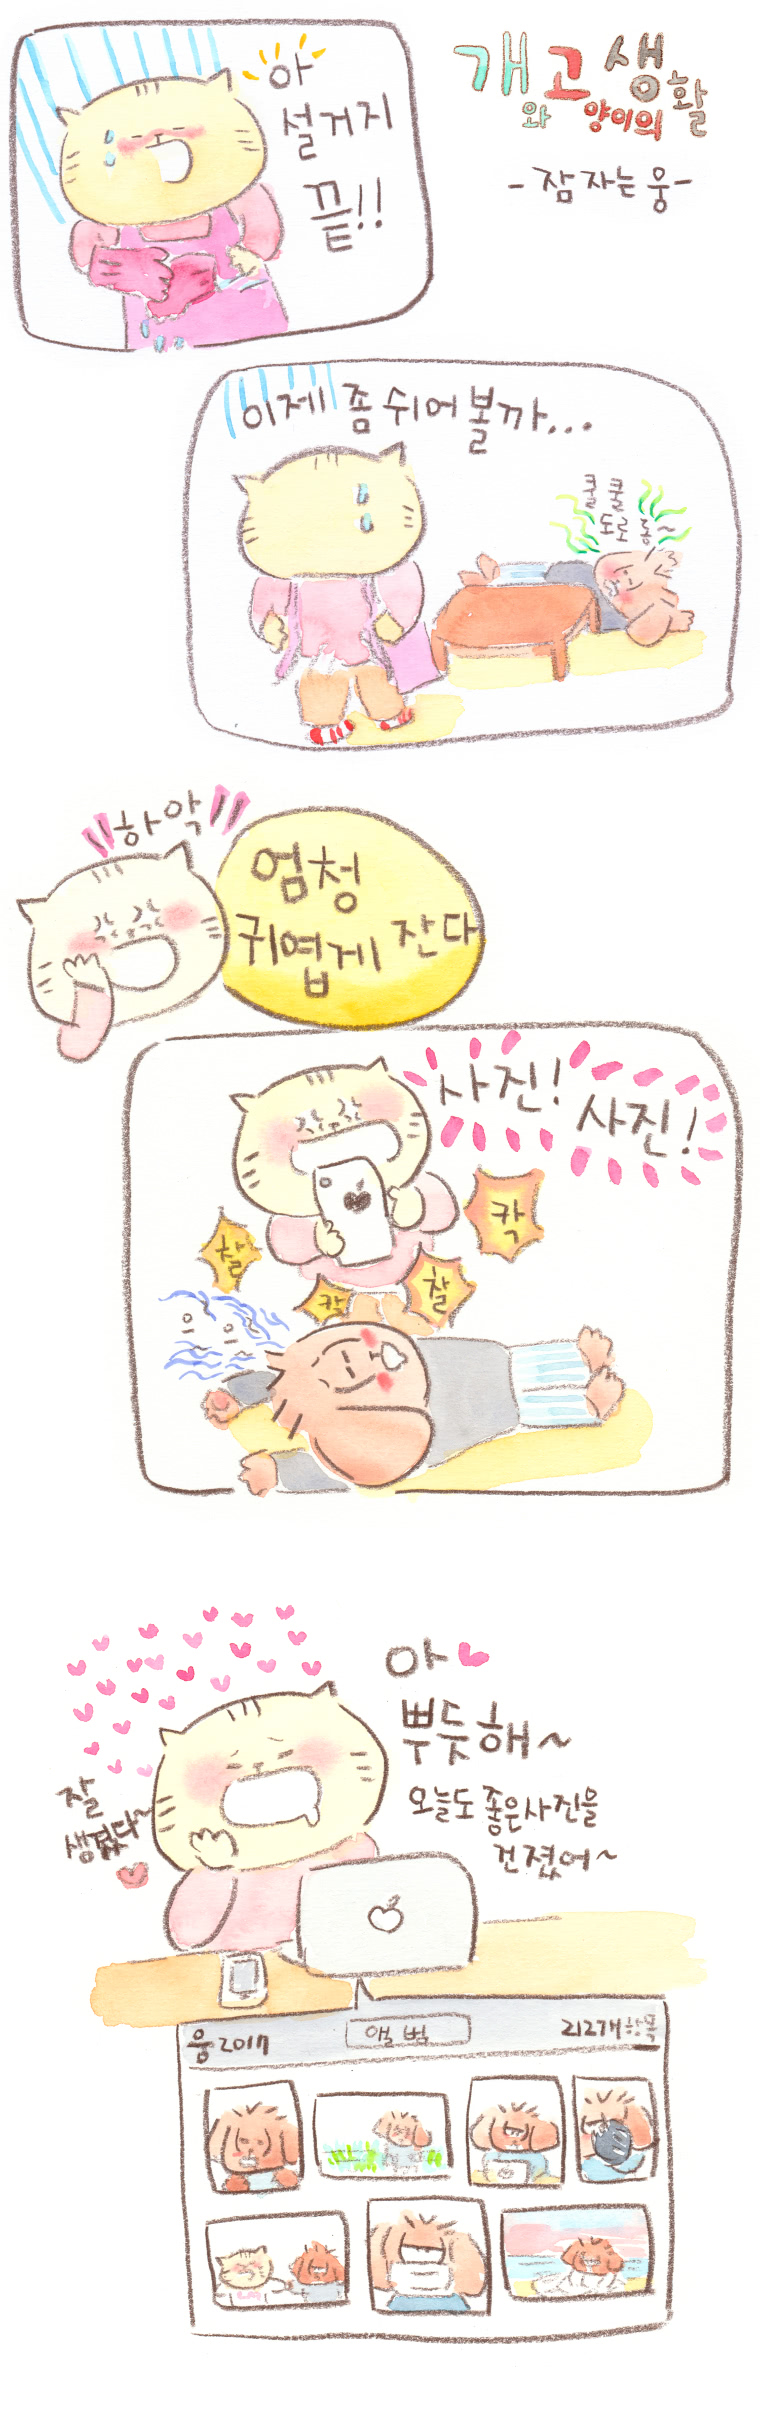 아
설거지
끝!!
개와 고양이의 생활
-잠자는 웅-
이제 좀 쉬어볼까...
쿨쿨
도로롱~
하악
엄청
귀엽게 잔다
사진! 사진!
찰
칵
찰
칵
으 으
아
뿌듯해~
오늘도 좋은사진을
건졌어~
잘
생겼다~
웅2017
앨범
212개항목